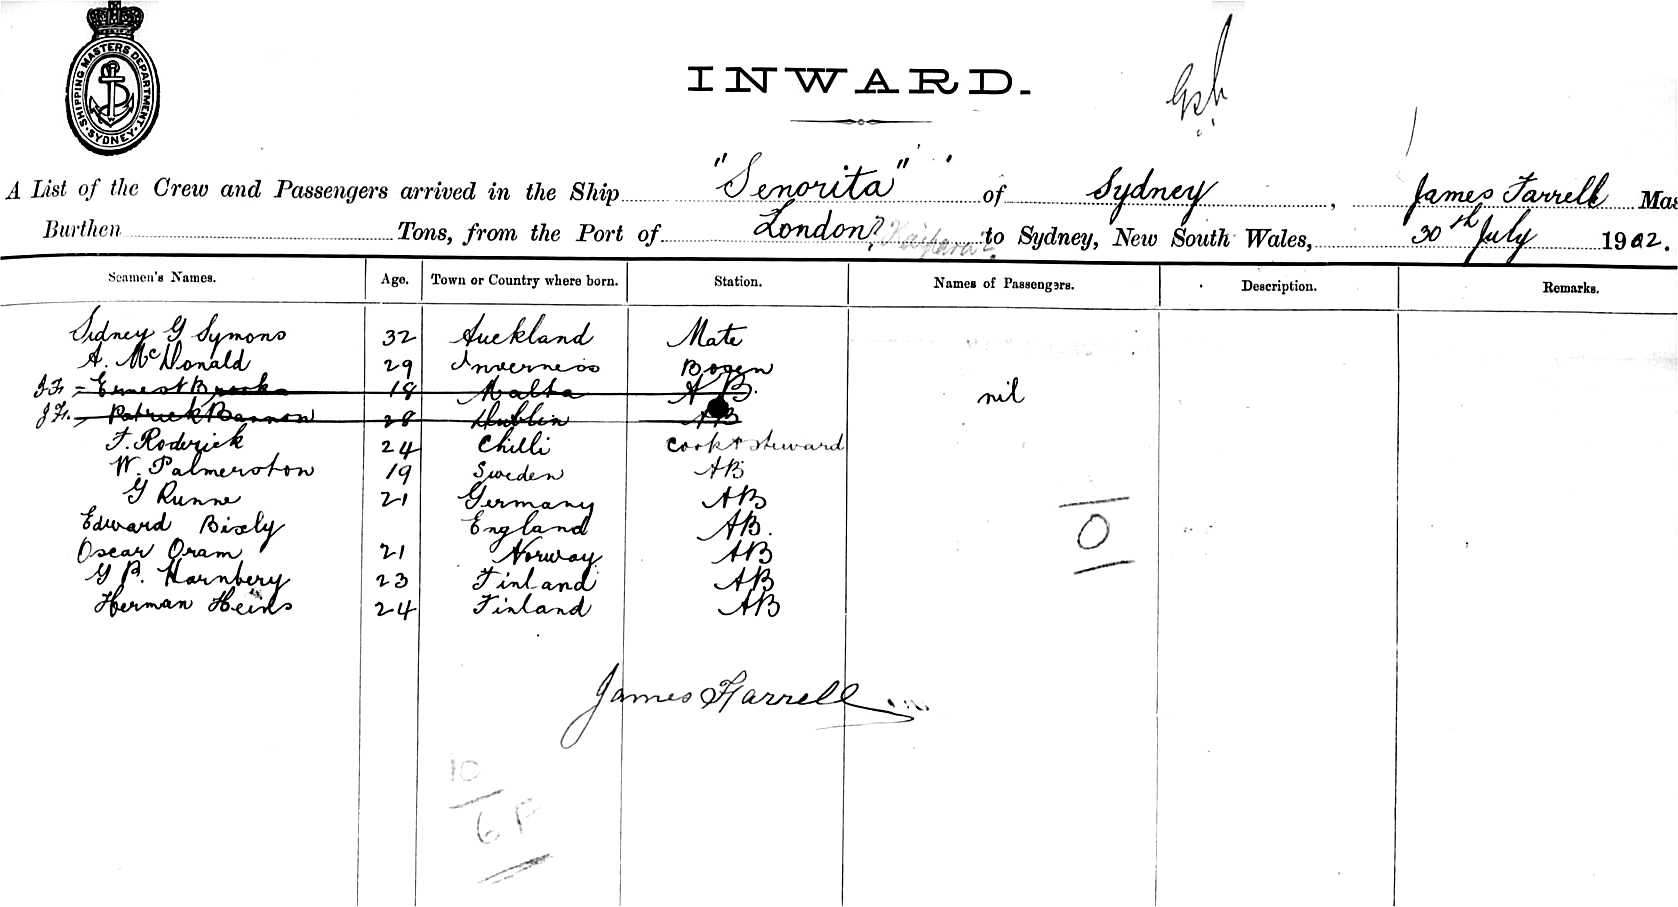 SHIPPING MASTERS DEPARTMENT
SYDNEY
INWARD.
A List of the Crew and Passengers arrived in the Ship "Senorita" of Sydney, James Farrell Mas
Burthen Tons, from the Port of London? Kaipara? to Sydney, New South Wales, 30th July 1902.
Seamen's Names. Age. Town or Country where born. Station. Names of Passengers. Description. Remarks.
Sidney G Symons 32 Auckland Mate
A. McDonald 29 Inverness Bosen
J.F. = Ernest Brooks 18 Malta A B. nil
J.F. Patrick Bannon 28 Dublin AB
F. Roderick 24 Chilli Cook & Steward
W. Palmerston 19 Sweden AB
G Runne 21 Germany AB
Edward Bixly England AB.
Oscar Oram 21 Norway AB
G P. Harnbery 23 Finland AB
Herman Heins 24 Finland AB
0
James Farrell
10
6 P